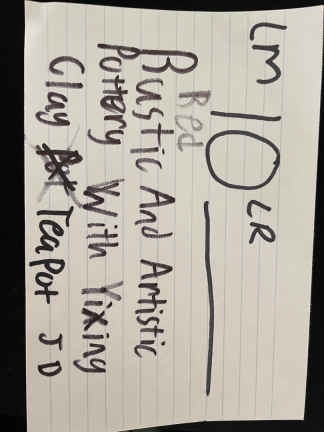 LM 10 LR
Red
Rustic And Artistic
Pottery With Yixing
Clay Teapot JD